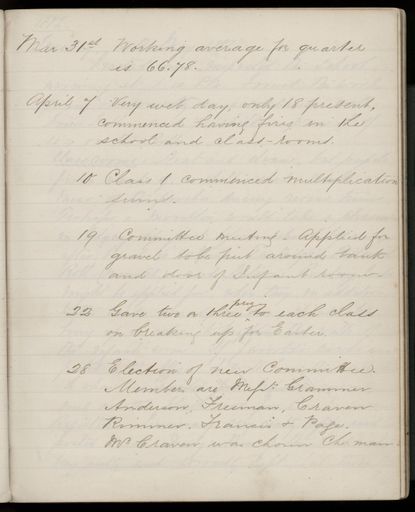 Mar 31st Working average for quarter
is 66.78.
April 7 Very wet day, only 18 present,
commenced having fires in the
school and class-rooms.
10 Class 1 commenced multiplication
sums.
19 Committee meeting. Applied for
gravel to be put around tank
and door of Infant room.
22 Gave two or three to each class
on breaking up for Easter.
28 Election of new Committee.
Members are Messrs. Crammer
Anderson, Freeman, Craven
Rimmer, Francis & Page.
Mr Craven was chosen Chairman